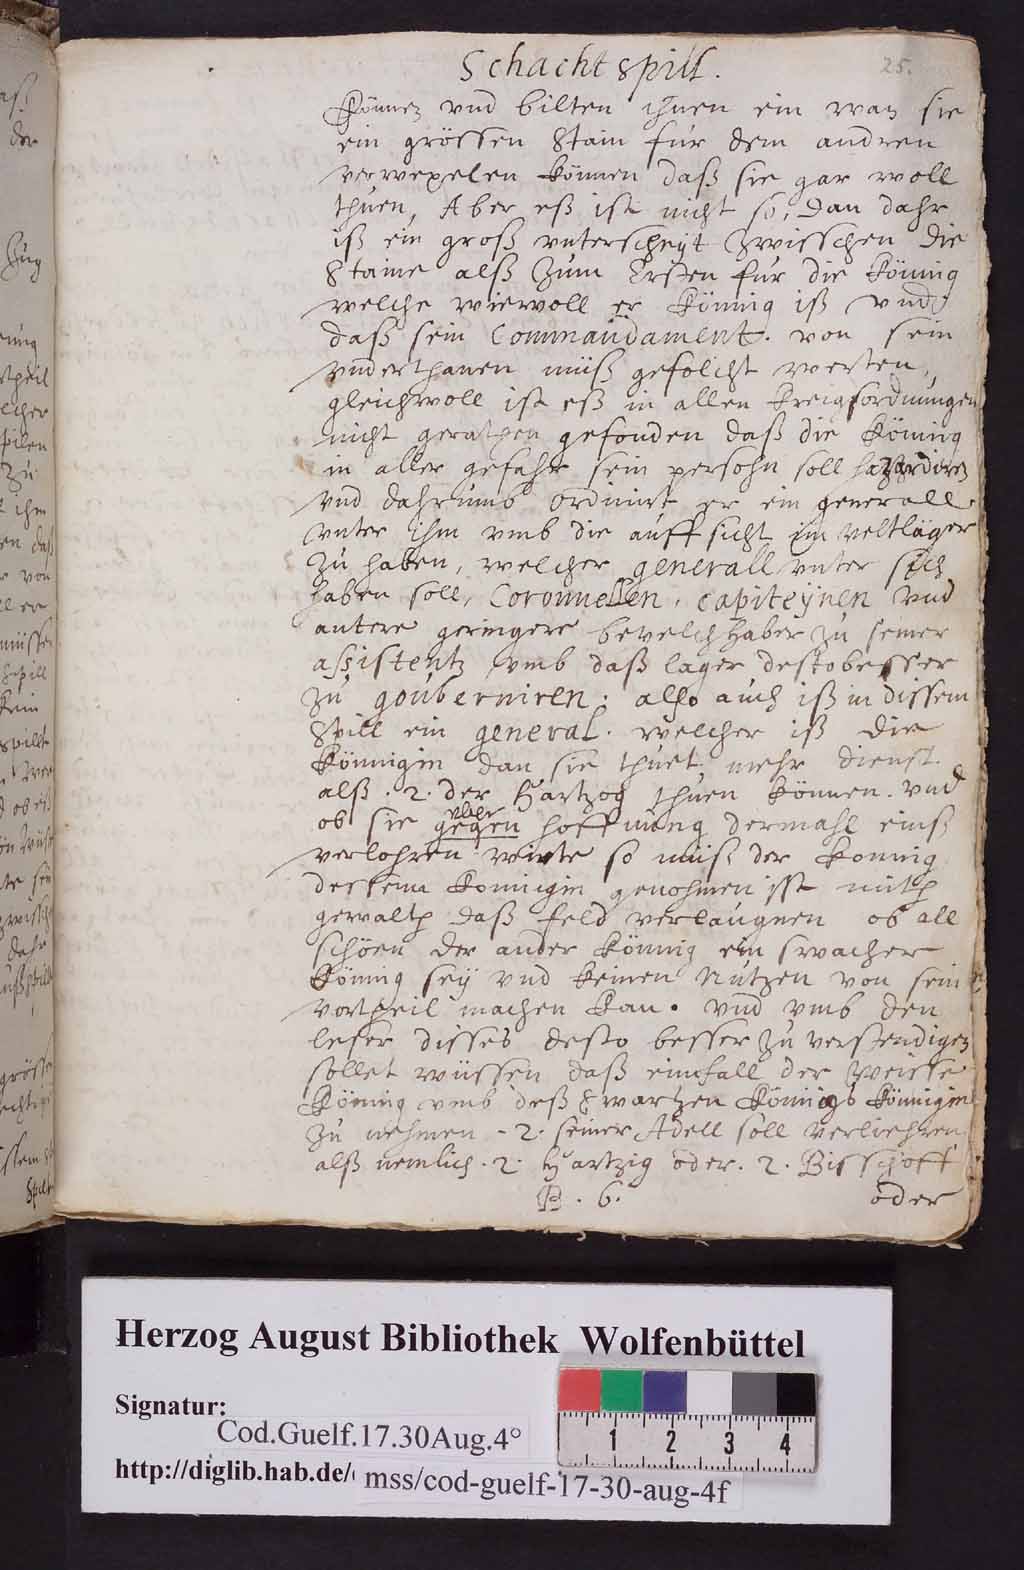 Schacht spill.
25.
Können vnd bilten ihnen ein wan sie
ein grössen Stain für dem andren
verwexelen können daß sie gar woll
thuen, Aber eß ist nicht so, dan dahr
iß ein groß vnterscheyt zwisschen die
Staine alß zum Ersten für die Könnig
welche wiewoll er Könnig iß vnd
daß sein Commandament. von sein
vnderthanen müß gefolcht werten,
gleichwoll ist eß in allen Kreigßordnungen
nicht gerathen gefonden daß die Könnig
in aller gefahr sein persohn soll hazardiren
vnd dahrumb ordinirt er ein generall
vnter ihm vmb die auff sicht im veltläger
zu haben, welcher generall vnter sich
haben soll, Coronnellen, capiteynen vnd
antere geringere bevelchhaber zu seiner
assistentz vmb daß lager destobesser
zu gouberniren. also auch iß in dissem
Spill ein general. welcher iß die
Könnigin dan sie thuet mehr dienst
alß .2. der Hartzog thuen können. vnd
ob sie gegen hoffnung dermahl einß
vber
verlohren wirte so müß der Konnig
dessen Konnigin genohmen isst mith
gewalth daß feld verlaugnen ob all
schoen der ander Könnig ein swacher
Könnig sey vnd keinen Nutzen von sein
vortheil machen kan. vnd vmb den
leser disses desto besser zu verstendigen
sollet wüssen daß einfall der weisse
Könnig vmb deß Swartzen Könnigs Könnigin
zu nehmen - 2. seiner Adell soll verliehren
alß nemlich .2. Hartzig oder .2. Bisschoff
B. 6.
oder
Herzog August Bibliothek Wolfenbüttel
Signatur:
Cod.Guelf.17.30Aug.4°
http://diglib.hab.de/
mss/cod-guelf-17-30-aug-4f
1 2 3 4